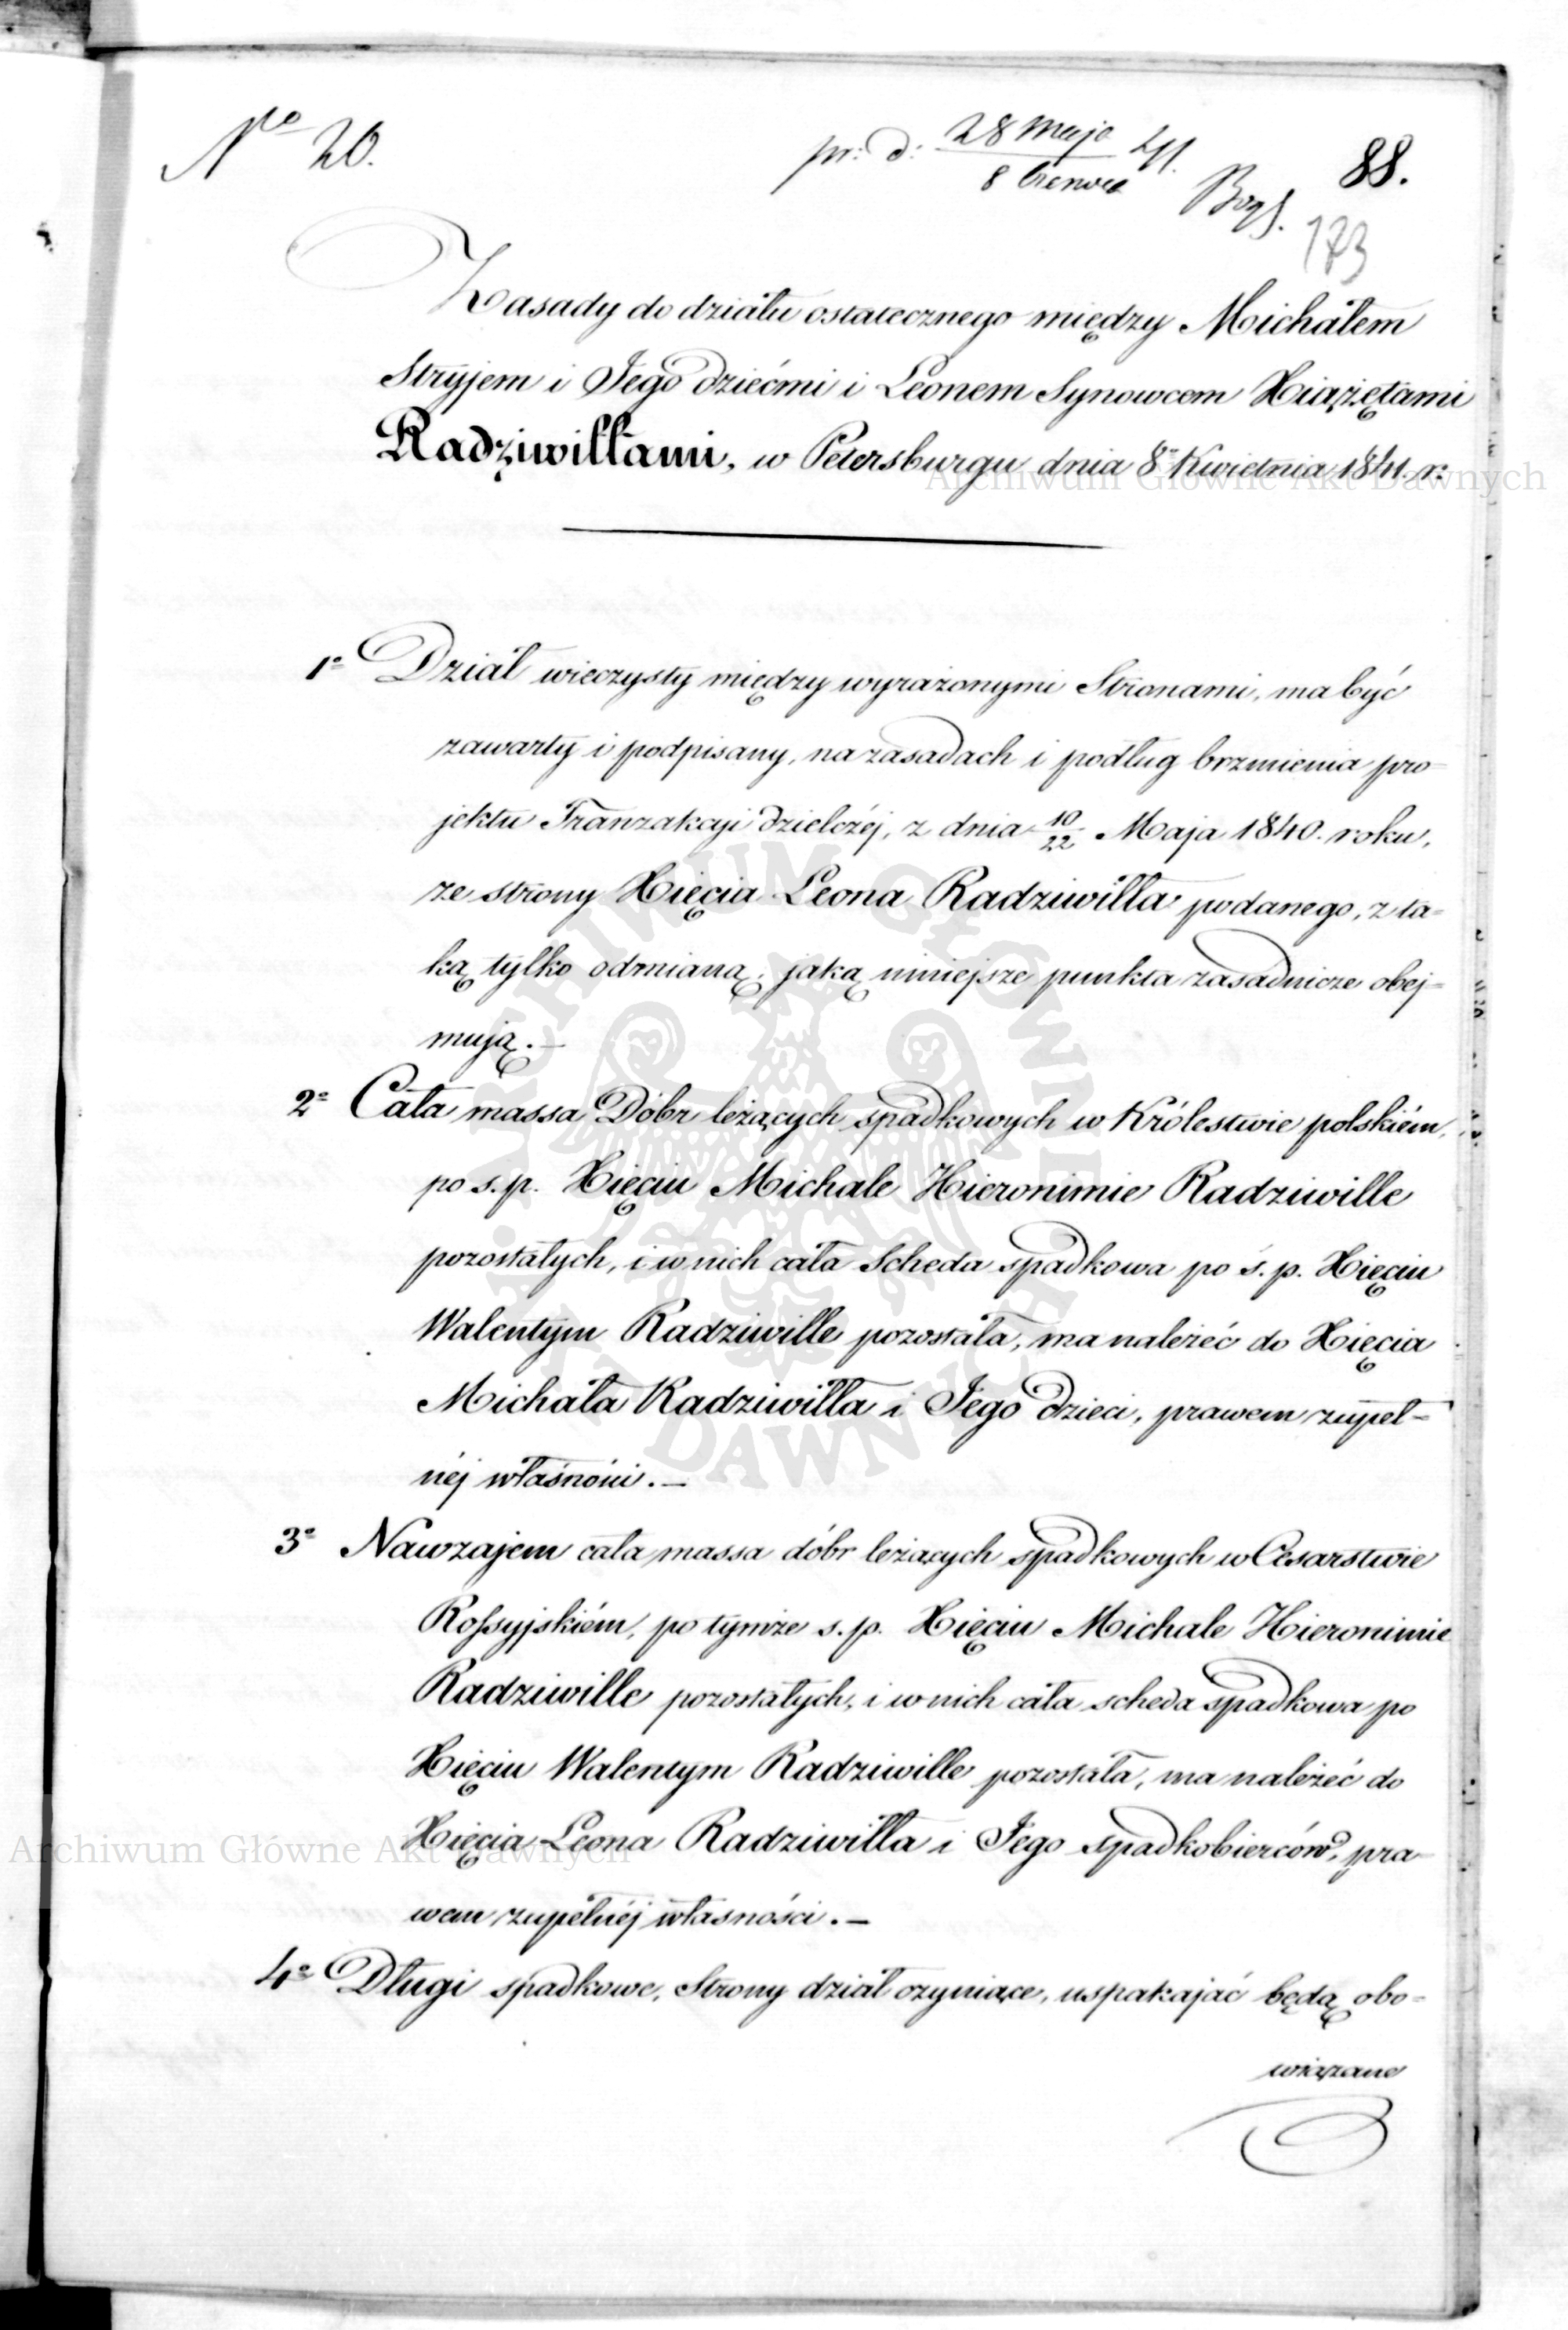 No 20.
pr: d: 28 Maja / 8 Czerwca 41.
88.
173
Zasady do działu ostatecznego między Michałem
Stryjem i Jego dziećmi i Leonem Synowcem Xiążętami
Radziwiłłami, w Petersburgu dnia 8o Kwietnia 1841. r:
1o Dział wieczysty między wyrażonymi Stronami, ma być
zawarty i podpisany, na zasadach i podług brzmienia pro=
jektu Tranzakcyi dzielczéj, z dnia 10/22 Maja 1840. roku,
ze strony Xięcia Leona Radziwiłła podanego, z ta=
ką tylko odmianą, jaką niniejsze punkta zasadnicze obej=
mują. —
2o Cała massa Dóbr leżących spadkowych w Królestwie polskiém,
po s. p. Xięciu Michale Hieronimie Radziwille
pozostałych, i w nich cała Scheda spadkowa po ś. p. Xięciu
Walentym Radziwille pozostała, ma należéć do Xięcia
Michała Radziwiłła i Jego dzieci, prawem zupeł=
néj własności. —
3o Nawzajem cała massa dóbr leżących spadkowych w Cesarstwie
Rossyjskiém, po tymże s. p. Xięciu Michale Hieronimie
Radziwille pozostałych, i w nich cała scheda spadkowa po
Xięciu Walentym Radziwille pozostała, ma należéć do
Xięcia Leona Radziwiłła i Jego spadkobierców, pra=
wem zupełnéj własności. —
4o Długi spadkowe, Strony dział czyniące, uspakajać będą obo=
wiązane
Archiwum Główne Akt Dawnych
Archiwum Główne Akt Dawnych
ARCHIWUM GŁÓWNE AKT DAWNYCH